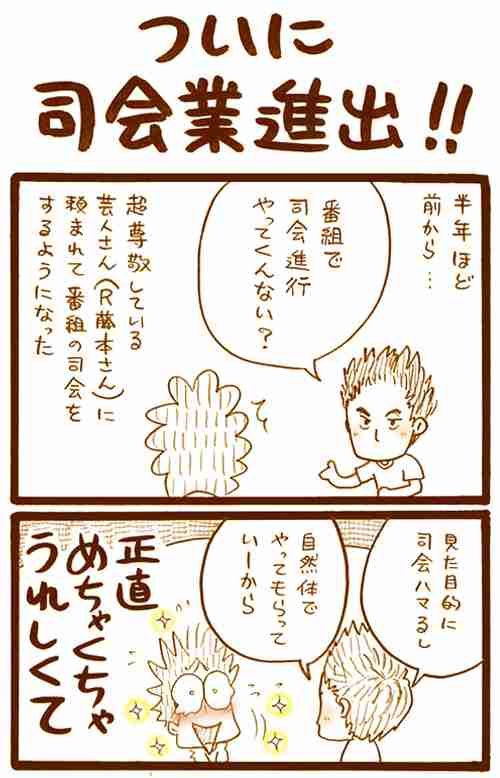 ついに
司会業進出!!
半年ほど
前から…
番組で
司会進行
やってくんない？
超尊敬している
芸人さん(R藤本さん)に
頼まれて番組の司会を
するようになった
見た目的に
司会ハマるし
自然体で
やってもらって
いーから
正直
めちゃくちゃ
うれしくて